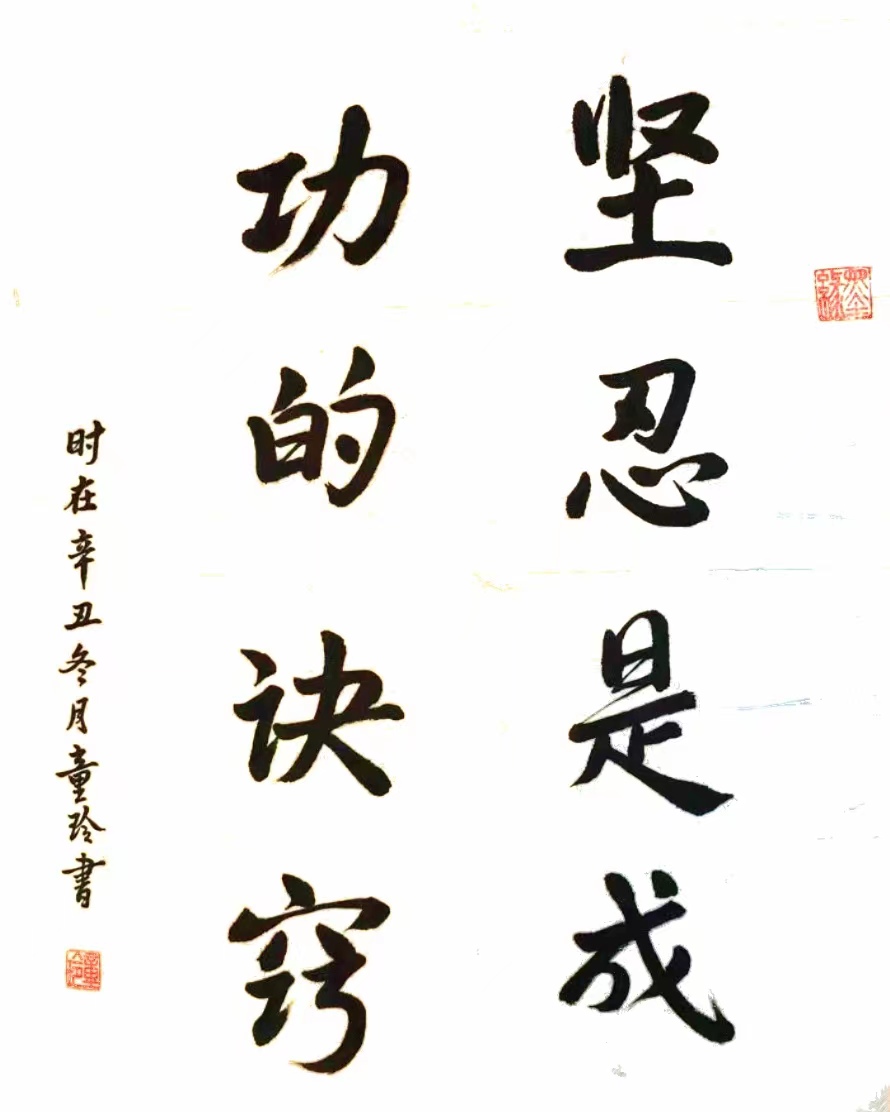 坚忍是成
功的诀窍
时在辛丑冬月童玲书